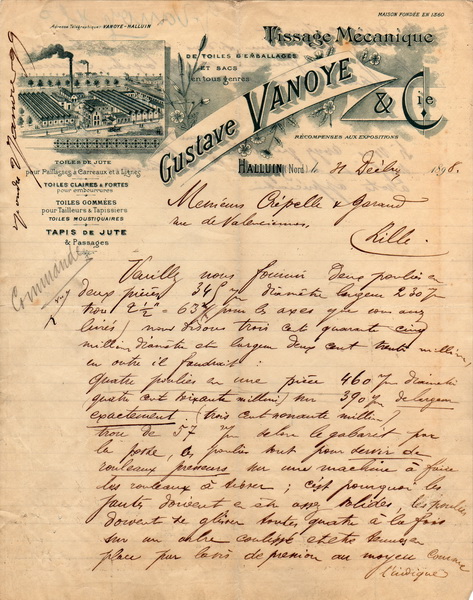 MAISON FONDÉE EN 1860
Adresse Télégraphique: VANOYE-HALLUIN
Tissage Mécanique
DE TOILES D'EMBALLAGES
ET SACS
en tous genres
Gustave VANOYE & Cie
RÉCOMPENSES AUX EXPOSITIONS
TOILES DE JUTE
pour Paillasses à Carreaux et à Lignes
TOILES CLAIRES & FORTES
pour embourrures
TOILES GOMMÉES
pour Tailleurs & Tapissiers
TOILES MOUSTIQUAIRES
TAPIS DE JUTE
& Passages
HALLUIN (Nord) le 31 Décbre 1898.
Messieurs Crépelle & Garand
rue de Valenciennes
Lille.
Commande
Veuillez nous fournir deux poulies en
deux pièces 345 m/m diamètre largeur 230 m/m
trou = 63 m/m pour les axes que vous avez
livrés / nous disons trois cent quarante cinq
millim diamètre et largeur deux cent trente millim
en outre il faudrait :
Quatre poulies en une pièce 460 m/m diamètre
quatre cent soixante millim) sur 390 m/m de largeur
exactement. (trois cent nonante millim)
trou de 57 m/m selon le gabarit par
la poste, ces poulies sont pour servir de
rouleaux presseurs sur une machine à faire
des rouleaux à tisser ; c'est pourquoi les
jantes doivent être assez solides, les poulies
doivent se glisser toutes quatre à la fois
sur un arbre coulissé et être tenues en
place par la vis de pression au moyen comme
l'indique